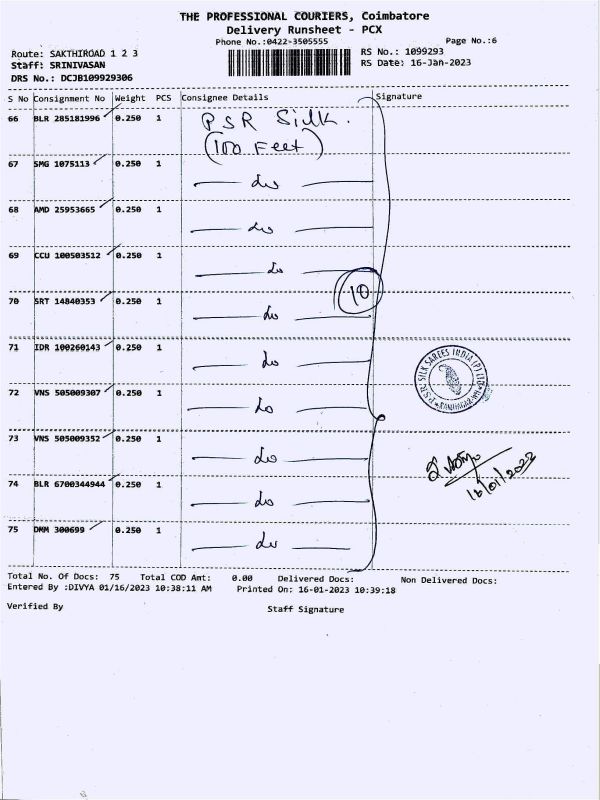 THE PROFESSIONAL COURIERS, Coimbatore
Delivery Runsheet - PCX
Phone No.:0422-3505555
Page No.:6
Route: SAKTHIROAD 1 2 3
RS No.: 1099293
Staff: SRINIVASAN
RS Date: 16-Jan-2023
DRS No.: DCJB109929306
S No Consignment No Weight PCS Consignee Details Signature
66 BLR 285181996 0.250 1 PSR Silk.
(100 Feet)
67 SMG 1075113 0.250 1 do
68 AMD 25953665 0.250 1 do
69 CCU 100503512 0.250 1 do
10
70 SRT 14840353 0.250 1 do
71 IDR 100260143 0.250 1 do
72 VNS 505009307 0.250 1 do
PSR SILK SAREES INDIA (P) LTD
73 VNS 505009352 0.250 1 do
74 BLR 6700344944 0.250 1 do
16/01/2023
75 DMM 300699 0.250 1 do
Total No. Of Docs: 75 Total COD Amt: 0.00 Delivered Docs: Non Delivered Docs:
Entered By :DIVYA 01/16/2023 10:38:11 AM Printed On: 16-01-2023 10:39:18
Verified By Staff Signature